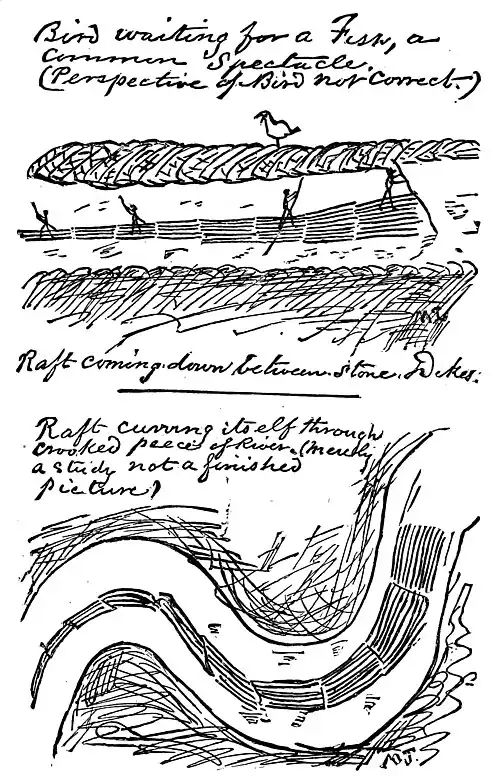 Bird waiting for a Fish, a
common Spectacle.
(Perspective of Bird not Correct.)
M.T.
Raft coming down between stone Dikes.
Raft curving itself through
crooked peece of River. (merely
a study not a finished
picture)
M.T.